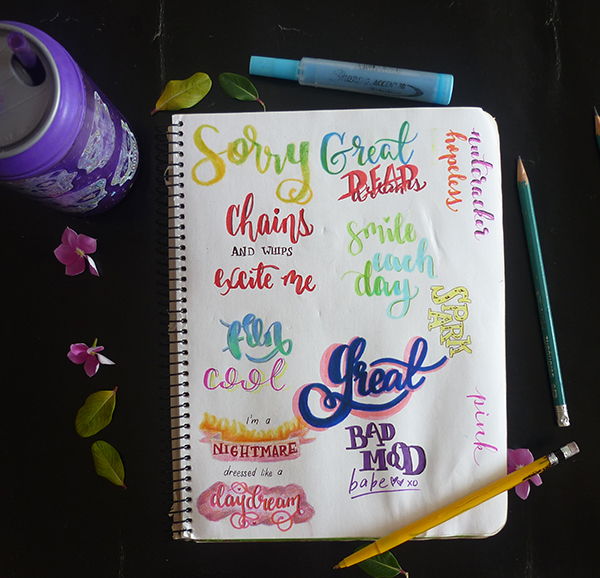 Sorry
Great
DEAD
dreams
Chains
AND WHIPS
excite me
smile
each
day
cool
great
I'm a
NIGHTMARE
dressed like a
daydream
BAD
MOOD
babe xo
nutcracker
hopeless
SPARK
pink